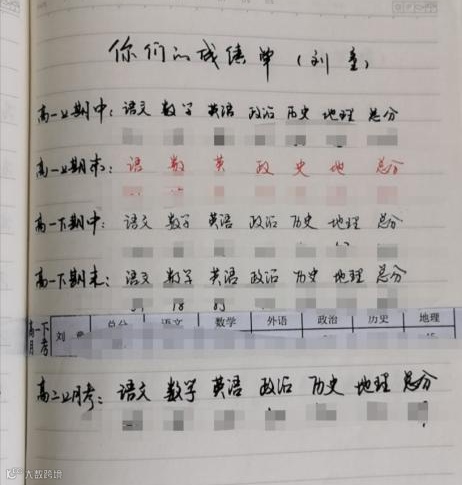 你们的成绩单（刘童）
高一上期中：语文 数学 英语 政治 历史 地理 总分
高一上期末：语 数 英 政 史 地 总分
高一下期中：语文 数学 英语 政治 历史 地理 总分
高一下期末：语文 数学 英语 政治 历史 地理 总分
高一下月考 刘 总分 语文 数学 外语 政治 历史 地理
高二上月考：语文 数学 英语 政治 历史 地理 总分
大数跨境